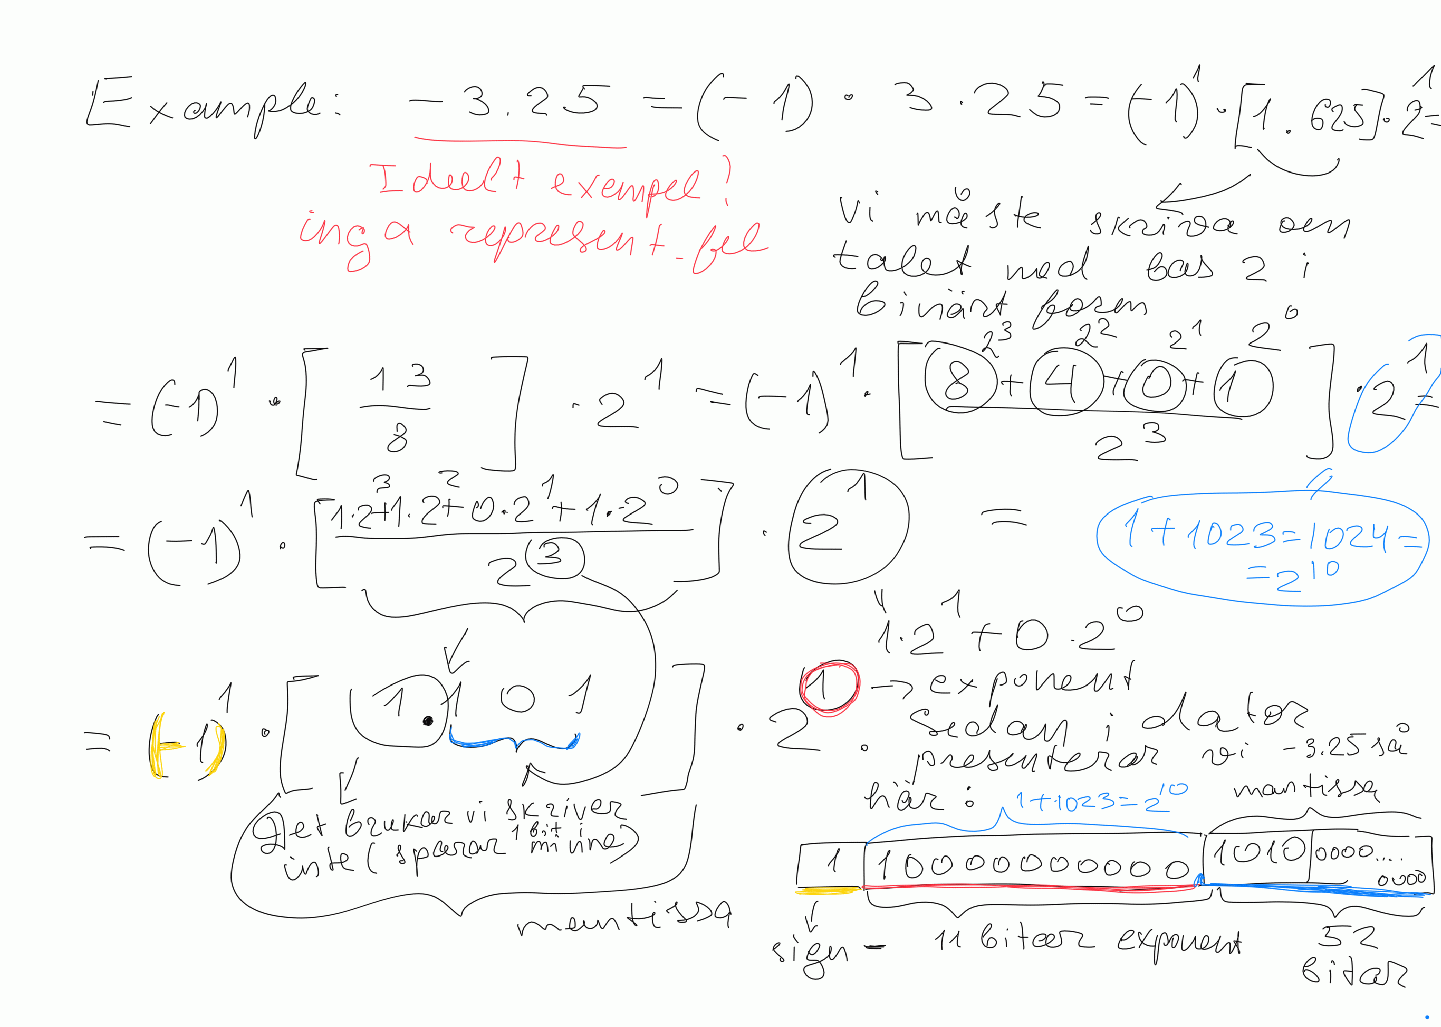 Example: -3.25 = (-1) · 3.25 = (-1)^1 · [1.625] · 2^1 =
Ideelt exempel!
inga represent. fel
vi måste skriva om
talet med bas 2 i
binärt form
= (-1)^1 · [13/8] · 2^1 = (-1)^1 · [(8+4+0+1)/2^3] · 2^1 =
2^3 2^2 2^1 2^0
= (-1)^1 · [(1·2^3+1·2^2+0·2^1+1·2^0)/2^3] · 2^1 =
1+1023=1024=
=2^10
1·2^1+0·2^0
= (-1)^1 · [1.101] · 2^1 → exponent
. Sedan i dator
presenterar vi -3.25 så
här: 1+1023=2^10 mantissa
Det brukar vi skriver
inte (sparar 1 bit i minne)
mantissa
1 10000000000 1010 0000.... 0000
sign - 11 bitar exponent 52
bitar